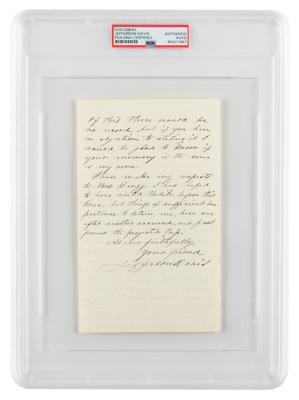 DOCUMENT
JEFFERSON DAVIS
PSA/DNA CERTIFIED
AUTHENTIC
AUTO
PSA
of this there would be
no need, but if you have
no objection to stating it I
would be glad to know if
your memory is the same
as my own.
Please make my respects
to Mrs. Bragg. I had hoped
to have visited Mobile before this
time, but things of sufficient im-
portance to detain me, have one
after another occurred and post
poned the projected trip.
As ever faithfully
Your friend
Jefferson Davis